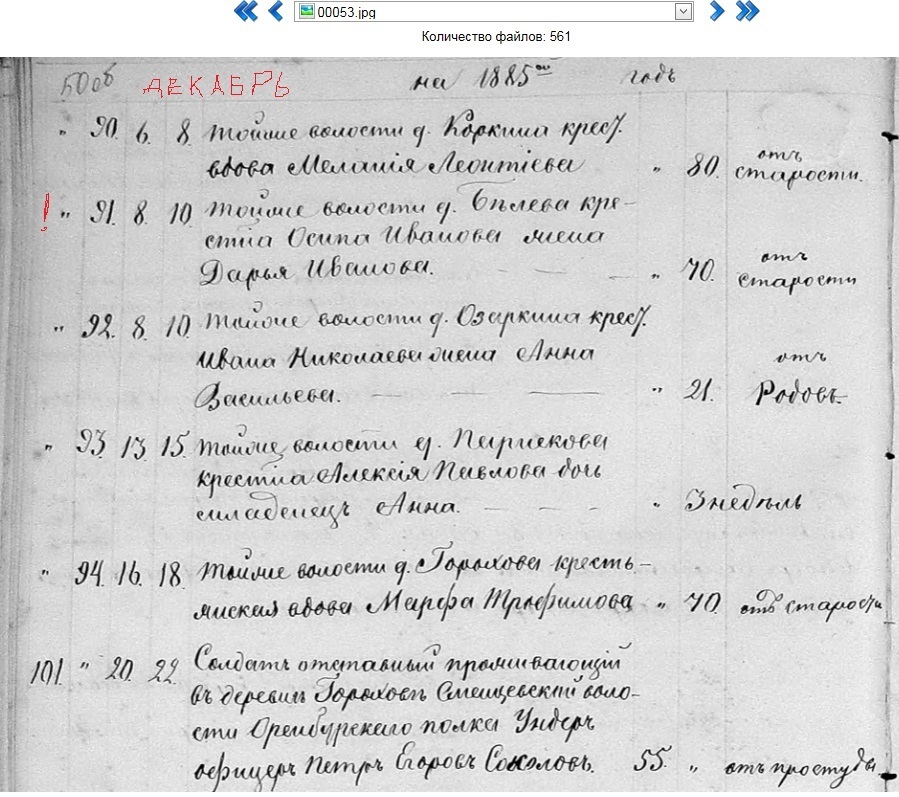 00053.jpg
Количество файлов: 561
50об ДЕКАБРЬ на 1885ой годъ
" 90. 6. 8. Тойже волости д. Коркина крест.
вдова Меланія Леонтіева " 80. отъ старости.
! " 91. 8. 10. Тойже волости д. Бѣлева кре-
стіна Осипа Иванова жена
Дарья Иванова. " 70. отъ старости
" 92. 8. 10. Тойже волости д. Озаркина крест.
Ивана Николаева жена Анна
Васильева. " 21. отъ Родовъ
" 93. 13. 15. Тойже волости д.
крестіна Алексія Павлова дочь
младенецъ Анна. " 3 недѣль
" 94. 16. 18. Тойже волости д. Горохова кресть-
янская вдова Марфа Трофимова " 70. отъ старости
101. " 20. 22. Солдатъ отставный проживающій
въ деревни Гороховѣ воло-
сти Оренбурскаго полка Ундеръ
офицеръ Петръ Егоровъ Соколовъ. 55. " отъ простуды.